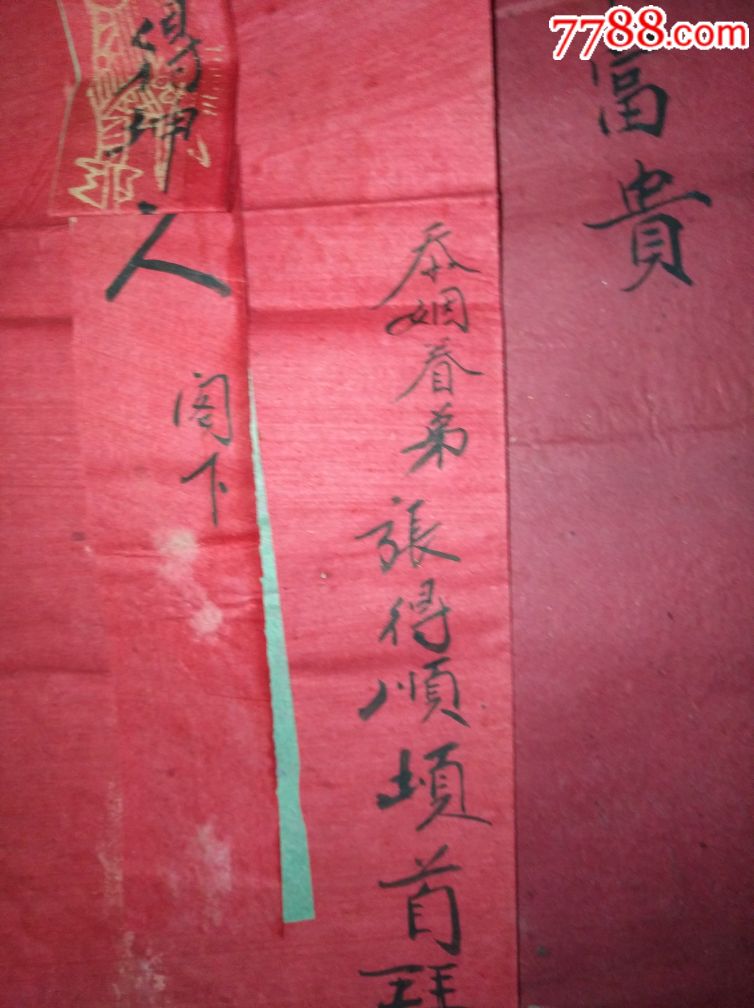 7788.com
富貴
忝姻眷弟張得順頓首拜
得坤人
阁下